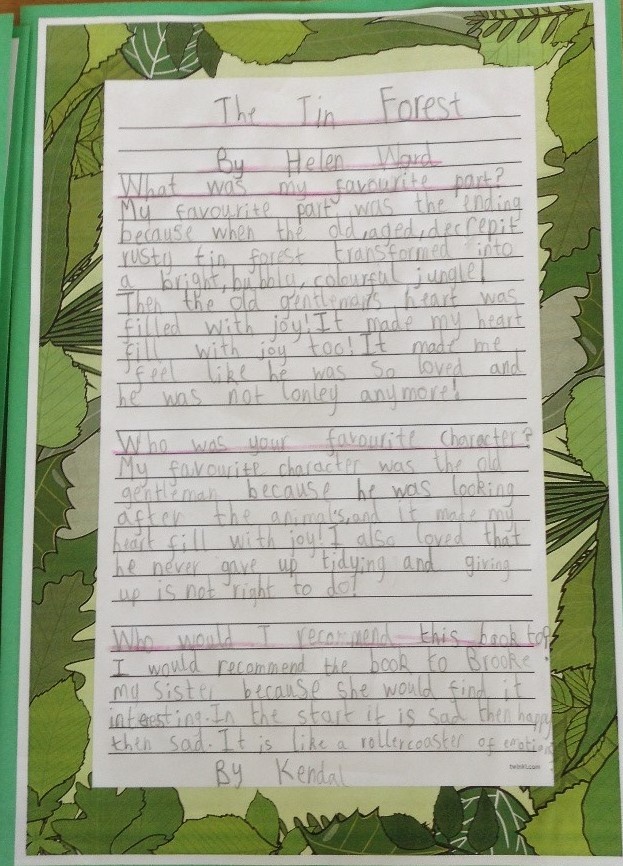 The Tin Forest
By Helen Ward
What was my favourite part?
My favourite part was the ending
because when the old, aged, decrepit
rusty tin forest transformed into
a bright, bubbly, colourful jungle!
Then the old gentleman's heart was
filled with joy! It made my heart
fill with joy too! It made me
feel like he was so loved and
he was not lonley anymore!
Who was your favourite character?
My favourite character was the old
gentleman because he was looking
after the animals, and it made my
heart fill with joy! I also loved that
he never gave up tidying and giving
up is not right to do!
Who would I recommend this book to?
I would recommend the book to Brooke
my sister because she would find it
interesting. In the start it is sad then happy
then sad. It is like a rollercoaster of emotion
twinkl.com
By Kendal